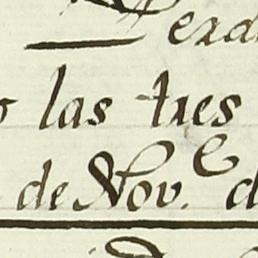 las tres
de Nov.e d